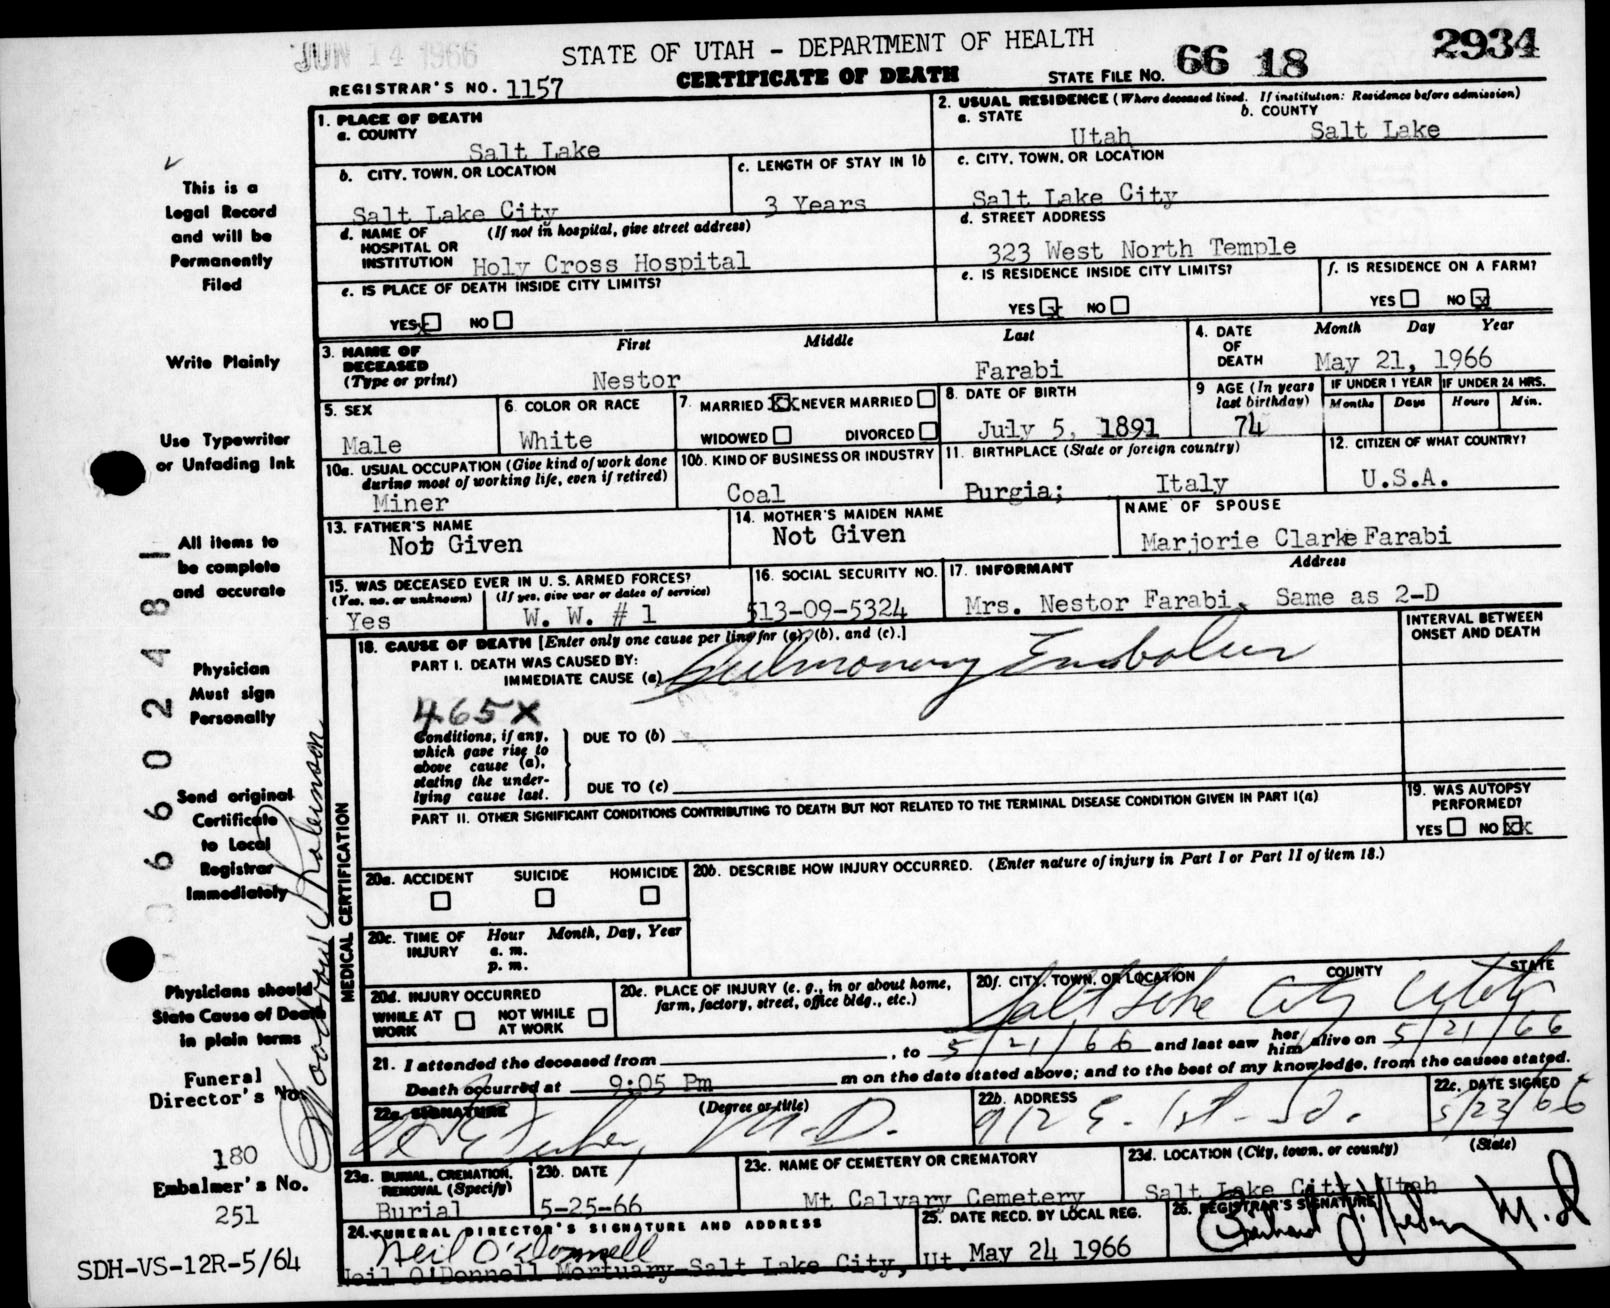 JUN 14 1966
STATE OF UTAH - DEPARTMENT OF HEALTH
CERTIFICATE OF DEATH
REGISTRAR'S NO. 1157
STATE FILE NO. 66 18 2934
1. PLACE OF DEATH
a. COUNTY
Salt Lake
2. USUAL RESIDENCE (Where deceased lived. If institution: Residence before admission)
a. STATE
Utah
b. COUNTY
Salt Lake
b. CITY, TOWN, OR LOCATION
Salt Lake City
c. LENGTH OF STAY IN 1b
3 Years
c. CITY, TOWN, OR LOCATION
Salt Lake City
d. NAME OF HOSPITAL OR INSTITUTION
(If not in hospital, give street address)
Holy Cross Hospital
d. STREET ADDRESS
323 West North Temple
e. IS PLACE OF DEATH INSIDE CITY LIMITS?
YES x NO
e. IS RESIDENCE INSIDE CITY LIMITS?
YES x NO
f. IS RESIDENCE ON A FARM?
YES NO x
3. NAME OF DECEASED
(Type or print)
First Middle Last
Nestor Farabi
4. DATE OF DEATH
Month Day Year
May 21, 1966
5. SEX
Male
6. COLOR OR RACE
White
7. MARRIED XX NEVER MARRIED
WIDOWED DIVORCED
8. DATE OF BIRTH
July 5, 1891
9 AGE (In years last birthday)
74
IF UNDER 1 YEAR IF UNDER 24 HRS.
Months Days Hours Min.
10a. USUAL OCCUPATION (Give kind of work done during most of working life, even if retired)
Miner
10b. KIND OF BUSINESS OR INDUSTRY
Coal
11. BIRTHPLACE (State or foreign country)
Purgia; Italy
12. CITIZEN OF WHAT COUNTRY?
U.S.A.
13. FATHER'S NAME
Not Given
14. MOTHER'S MAIDEN NAME
Not Given
NAME OF SPOUSE
Marjorie Clarke Farabi
15. WAS DECEASED EVER IN U. S. ARMED FORCES?
(Yes, no, or unknown) (If yes, give war or dates of service)
Yes W. W. # 1
16. SOCIAL SECURITY NO.
513-09-5324
17. INFORMANT Address
Mrs. Nestor Farabi, Same as 2-D
18. CAUSE OF DEATH [Enter only one cause per line for (a), (b), and (c).]
INTERVAL BETWEEN ONSET AND DEATH
PART I. DEATH WAS CAUSED BY:
IMMEDIATE CAUSE (a) Pulmonary Embolus
465X
Conditions, if any, which gave rise to above cause (a), stating the underlying cause last.
DUE TO (b)
DUE TO (c)
PART II. OTHER SIGNIFICANT CONDITIONS CONTRIBUTING TO DEATH BUT NOT RELATED TO THE TERMINAL DISEASE CONDITION GIVEN IN PART I(a)
19. WAS AUTOPSY PERFORMED?
YES NO XX
MEDICAL CERTIFICATION
20a. ACCIDENT SUICIDE HOMICIDE
20b. DESCRIBE HOW INJURY OCCURRED. (Enter nature of injury in Part I or Part II of item 18.)
20c. TIME OF INJURY
Hour Month, Day, Year
a. m.
p. m.
20d. INJURY OCCURRED
WHILE AT WORK NOT WHILE AT WORK
20e. PLACE OF INJURY (e. g., in or about home, farm, factory, street, office bldg., etc.)
20f. CITY, TOWN, OR LOCATION COUNTY STATE
Salt Lake City Utah
21. I attended the deceased from , to 5/21/66 and last saw her him alive on 5/21/66
Death occurred at 9:05 Pm m on the date stated above; and to the best of my knowledge, from the causes stated.
22a. SIGNATURE (Degree or title)
M.D.
22b. ADDRESS
912 E. 1st. So.
22c. DATE SIGNED
5/23/66
23a. BURIAL, CREMATION, REMOVAL (Specify)
Burial
23b. DATE
5-25-66
23c. NAME OF CEMETERY OR CREMATORY
Mt Calvary Cemetery
23d. LOCATION (City, town, or county) (State)
Salt Lake City Utah
24. FUNERAL DIRECTOR'S SIGNATURE AND ADDRESS
Neil O'Donnell
Neil O'Donnell Mortuary-Salt Lake City, Ut.
25. DATE RECD. BY LOCAL REG.
May 24 1966
26. REGISTRAR'S SIGNATURE
M.D
This is a
Legal Record
and will be
Permanently
Filed
Write Plainly
Use Typewriter
or Unfading Ink
All items to
be complete
and accurate
Physician
Must sign
Personally
Send original
Certificate
to Local
Registrar
Immediately
Physicians should
State Cause of Death
in plain terms
Funeral
Director's No.
180
Embalmer's No.
251
SDH-VS-12R-5/64